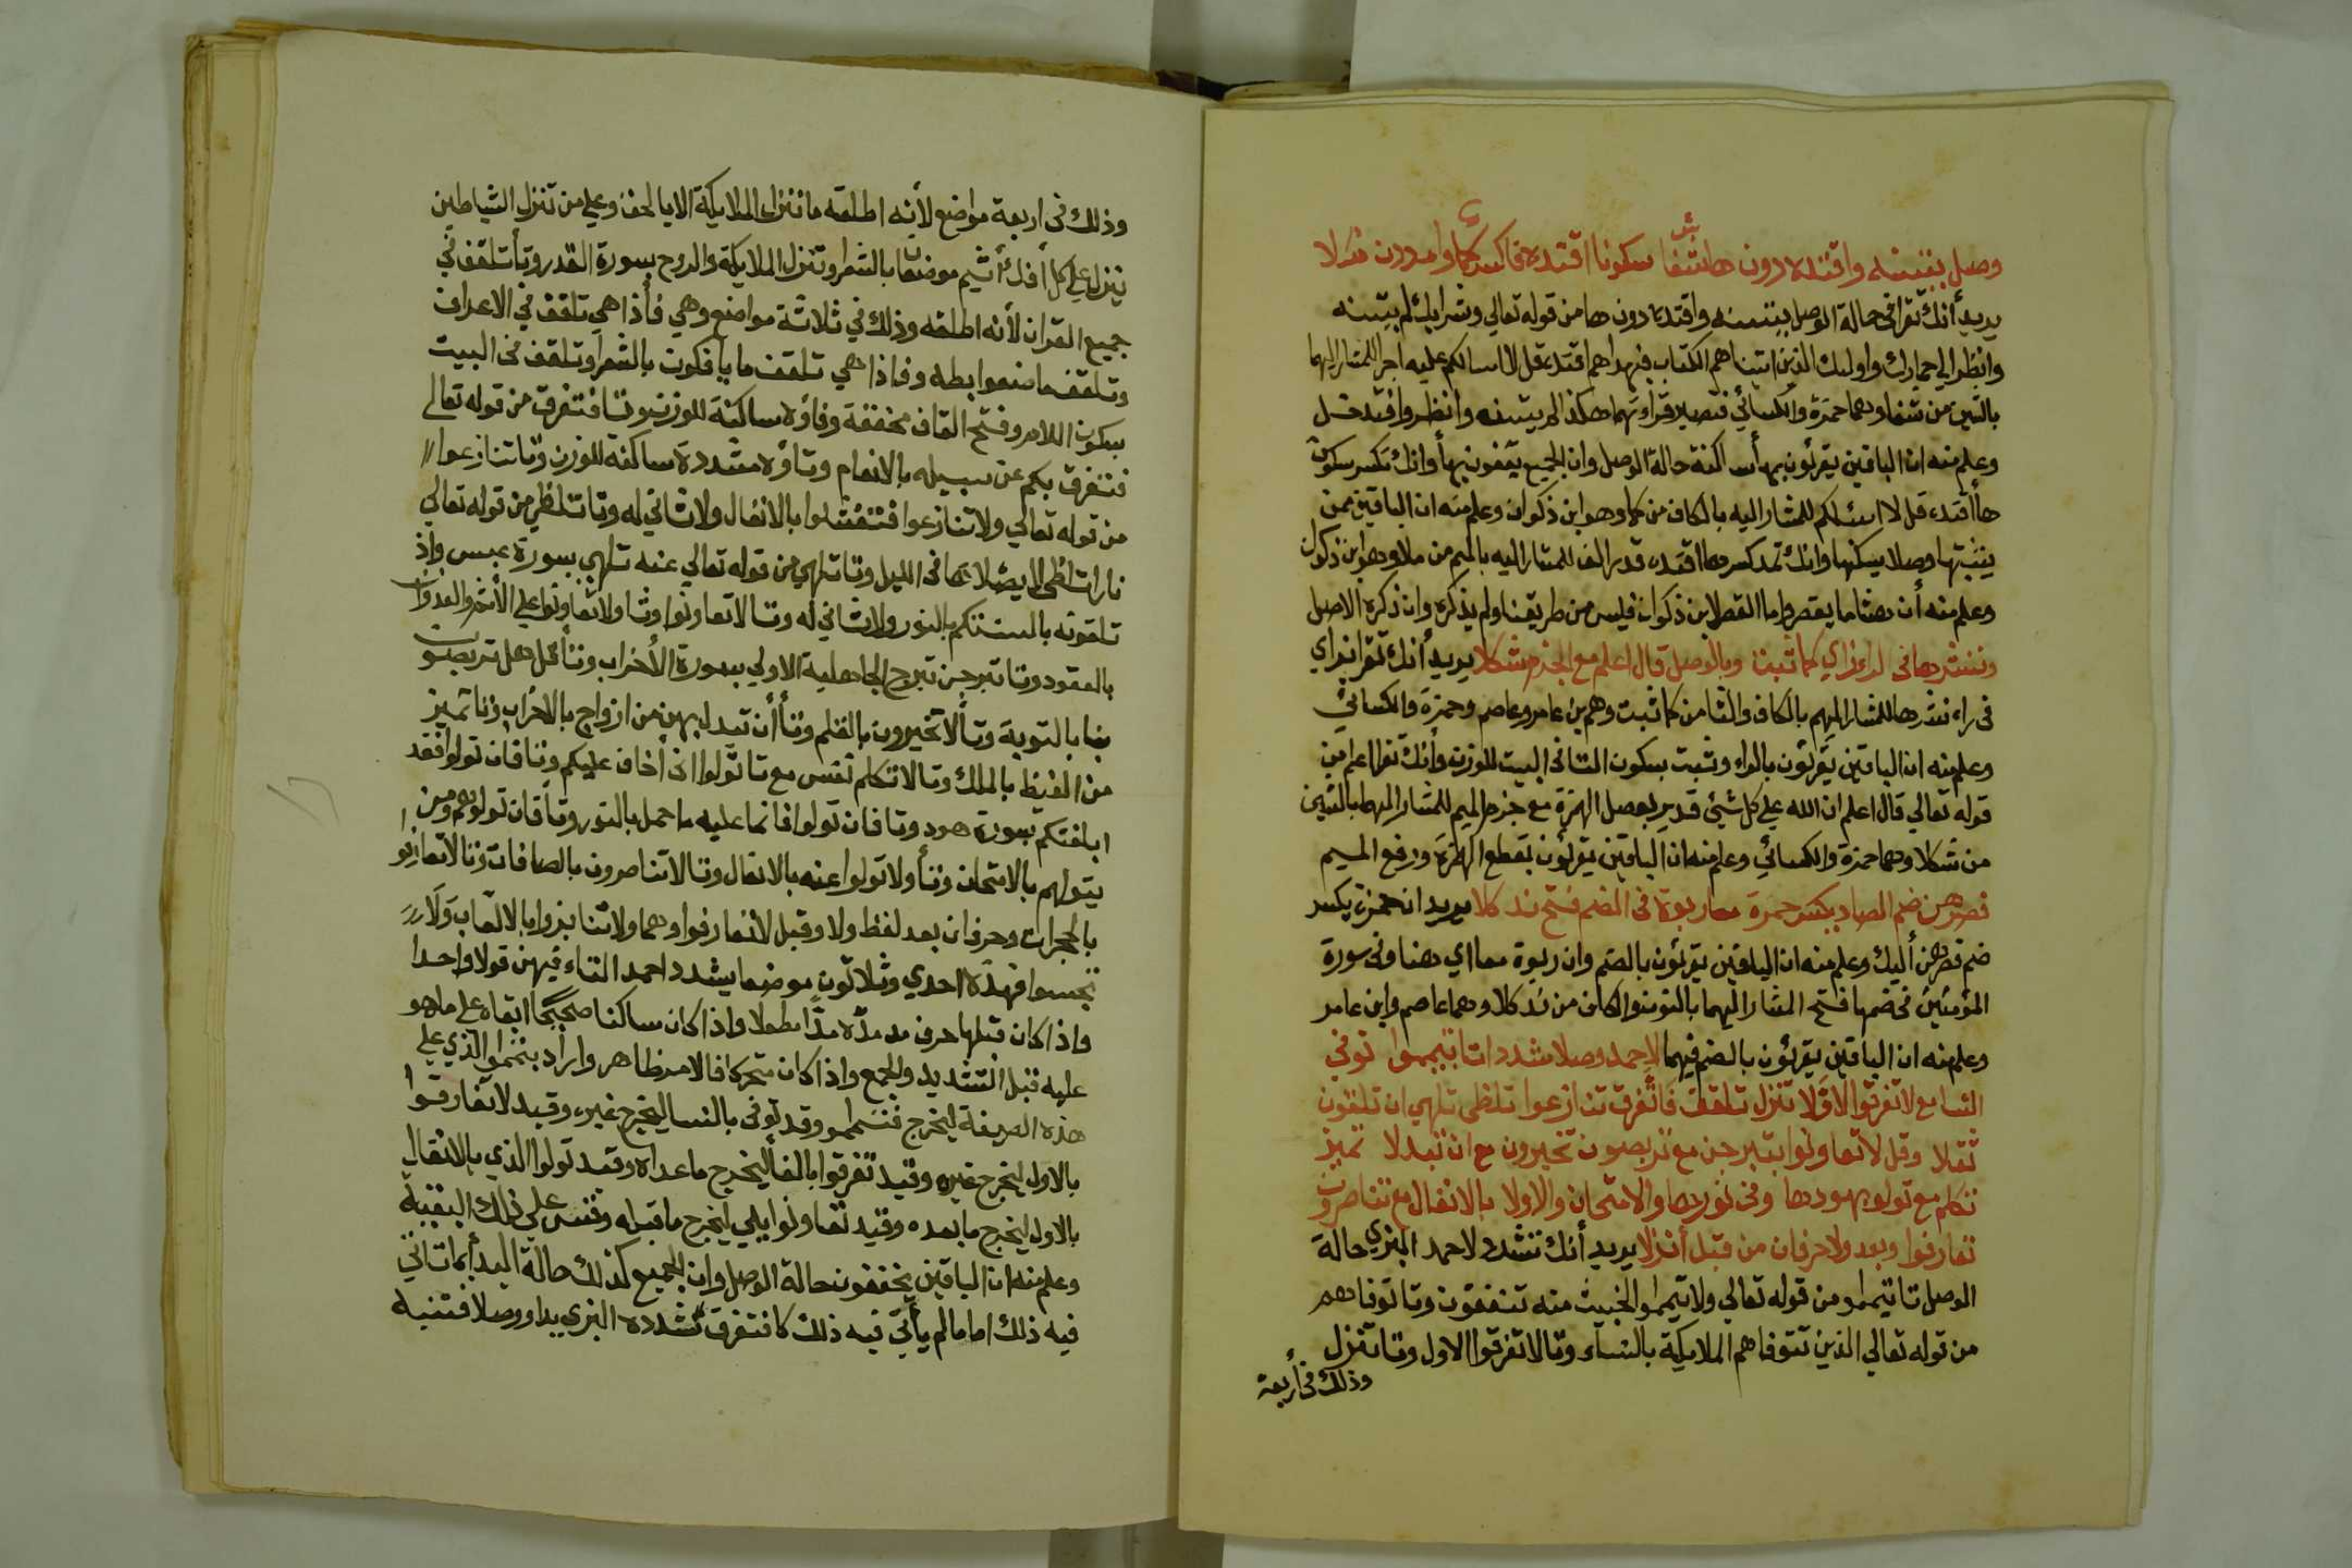 وصل بتسنه واقتده دون ها شفا سكونا اقتده فاكسر كما وامددن ملا
يريد أنك تقرا في حالة الوصل يتسنه واقتده دون ها من قوله تعالي وشرابك لم يتسنه
وانظر الي حمارك واوليك الذين اتيناهم الكتاب فبهداهم اقتده قل لا اسالكم عليه اجرا للمشار اليهما
بالشين من شفا وهما حمزة والكسائي فتصير قراءتهما هكذا لم يتسنه وانظر واقتد قل
وعلم منه ان الباقين يقرئون بها ساكنة حالة الوصل وان الجميع يقفون بها وانك تكسر سكون
ها اقتده قل لا اسئلكم للمشار اليه بالكاف من كما وهو ابن ذكوان وعلم منه ان الباقين ممن
يثبتها وصلا يسكنها وانك تمد كسر ها اقتده قدر الف للمشار اليه بالميم من ملا وهو ابن ذكوان
وعلم منه أن هشاما يقصر واما القصر لابن ذكوان فليس من طريقنا ولم يذكره وان ذكره الاصل
وننشرها في راء زاي كما ثبت وبالوصل قال اعلم مع الجزم شكلا يريد أنك تقرا بزاي
في راء ننشرها للمشار اليهم بالكاف والثا من كما ثبت وهم بن عامر وعاصم وحمزة والكسائي
وعلم منه ان الباقين يقرئون بالراء وثبت بسكون التا في البيت للوزن وأنك تقرا اعلم من
قوله تعالي قال اعلم ان الله علي كل شيئ قدير بوصل الهمزة مع جزم الميم للمشار اليهما بالشين
من شكلا وهما حمزة والكسائي وعلم منه ان الباقين يقرئون بقطع الهمزة ورفع الميم
فصرهن ضم الصاد يكسر حمزة معا ربوة في الضم فتح ند كلا يريد ان حمزة يكسر
ضم فصرهن أليك وعلم منه ان الباقين يقرئون بالضم وان ربوة معا اي هنا وفي سورة
المؤمنين في ضمها فتح المشار اليهما بالنون والكاف من ند كلا وهما عاصم وابن عامر
وعلم منه ان الباقين يقرئون بالضم فيهما لاحمد وصلا شددا تا تيمموا توفي
النسا مع لا تفرقوا الاولا تنزل تلقف فاتفرق تنازعوا تلظى تلهي ان تلقون
ثقلا وقل لا تعاونوا تبرجن مع تربصون تخيرون مع ان تبدلا تميز
تكلم مع تولوا بهودها وفي نورها والامتحان والاولا بالانفال مع تناصرون
تعارفوا وبعد ولا حرفان من قبل أنزلا يريد أنك تشدد لاحمد البزي حالة
الوصل تا تيمموا من قوله تعالي ولا تيمموا الخبيث منه تنفقون وتا توفاهم
من قوله تعالي الذين تتوفاهم الملايكة بالنساء وتا لا تفرقوا الاول وتا تنزل
وذلك في أربعة
وذلك في اربعة مواضع لأنه اطلقه ما تنزل الملايكة الا بالحق وعلي من تنزل الشياطين
تنزل علي كل أفاك أثيم موضعان بالشعرا وتنزل الملايكة والروح بسورة القدر وتا تلقف في
جميع القران لأنه اطلقه وذلك في ثلاثة مواضع وهي فأذا هي تلقف في الاعراف
وتلقف ما صنعوا بطه وفاذا هي تلقف ما يأفكون بالشعرا وتلقف في البيت
بسكون اللام وفتح القاف مخففة وفاؤه ساكنة للوزن وتا فتفرق من قوله تعالي
فتفرق بكم عن سبيله بالانعام وتاؤه مشددة ساكنة للوزن وتا تنازعوا
من قوله تعالي ولا تنازعوا فتفشلوا بالانفال ولا ثاني له وتا تلظي من قوله تعالي
نارا تلظي لا يصلاها في الليل وتا تلهي من قوله تعالي عنه تلهي بسورة عبس واذ
تلقونه بالسنتكم بالنور ولا ثاني له وتا لا تعاونوا وتا ولا تعاونوا علي الأثم والعدوان
بالعقود وتا تبرجن تبرج الجاهلية الاولي بسورة الأحزاب وتا قل هل تربصون
بنا بالتوبة وتا لا تخيرون بالقلم وتا أن تبدل بهن من ازواج بالاحزاب وتا تميز
من الغيظ بالملك وتا لا تكلم نفس مع تا تولوا اني أخاف عليكم وتا فان تولوا فقد
ابلغتكم بسورة هود وتا فان تولوا فانما عليه ما حمل بالنور وتا فان تولوهم ومن
يتولهم بالامتحان وتا ولا تولوا عنه بالانفال وتا لا تناصرون بالصافات وتا لا تعارفوا
بالحجرات وحرفان بعد لفظ ولا وقبل لتعارفوا وهما ولا تنابزوا بالالقاب ولا
تجسسوا فهذه احدي وثلاثون موضعا يشدد احمد التاء فيهن قولا واحدا
واذا كان قبلها حرف مد مده مدا مطولا واذا كان ساكنا صحيحا ابقاه علي ما هو
عليه قبل التشديد والجمع واذا كان متحركا فالامر ظاهر واراد بتيمموا الذي علي
هذه الصيغة ليخرج فتيمموا وقد توفي بالنسا ليخرج غيره وقيد لا تفارقوا
بالاول ليخرج غيره وقيد تفرقوا بالفا ليخرج ما عداه وقيد تولوا الذي بالانفال
بالاول ليخرج ما بعده وقيد تعاونوا بلي ليخرج ما قبله وقس علي ذلك البقية
وعلم منه ان الباقين يخففون حالة الوصل وان الجميع كذلك حالة البدأ بما تاتي
فيه ذلك اما ما لم يأتي فيه ذلك كا فتفرق تشدده البزي بدا ووصلا فتنبه